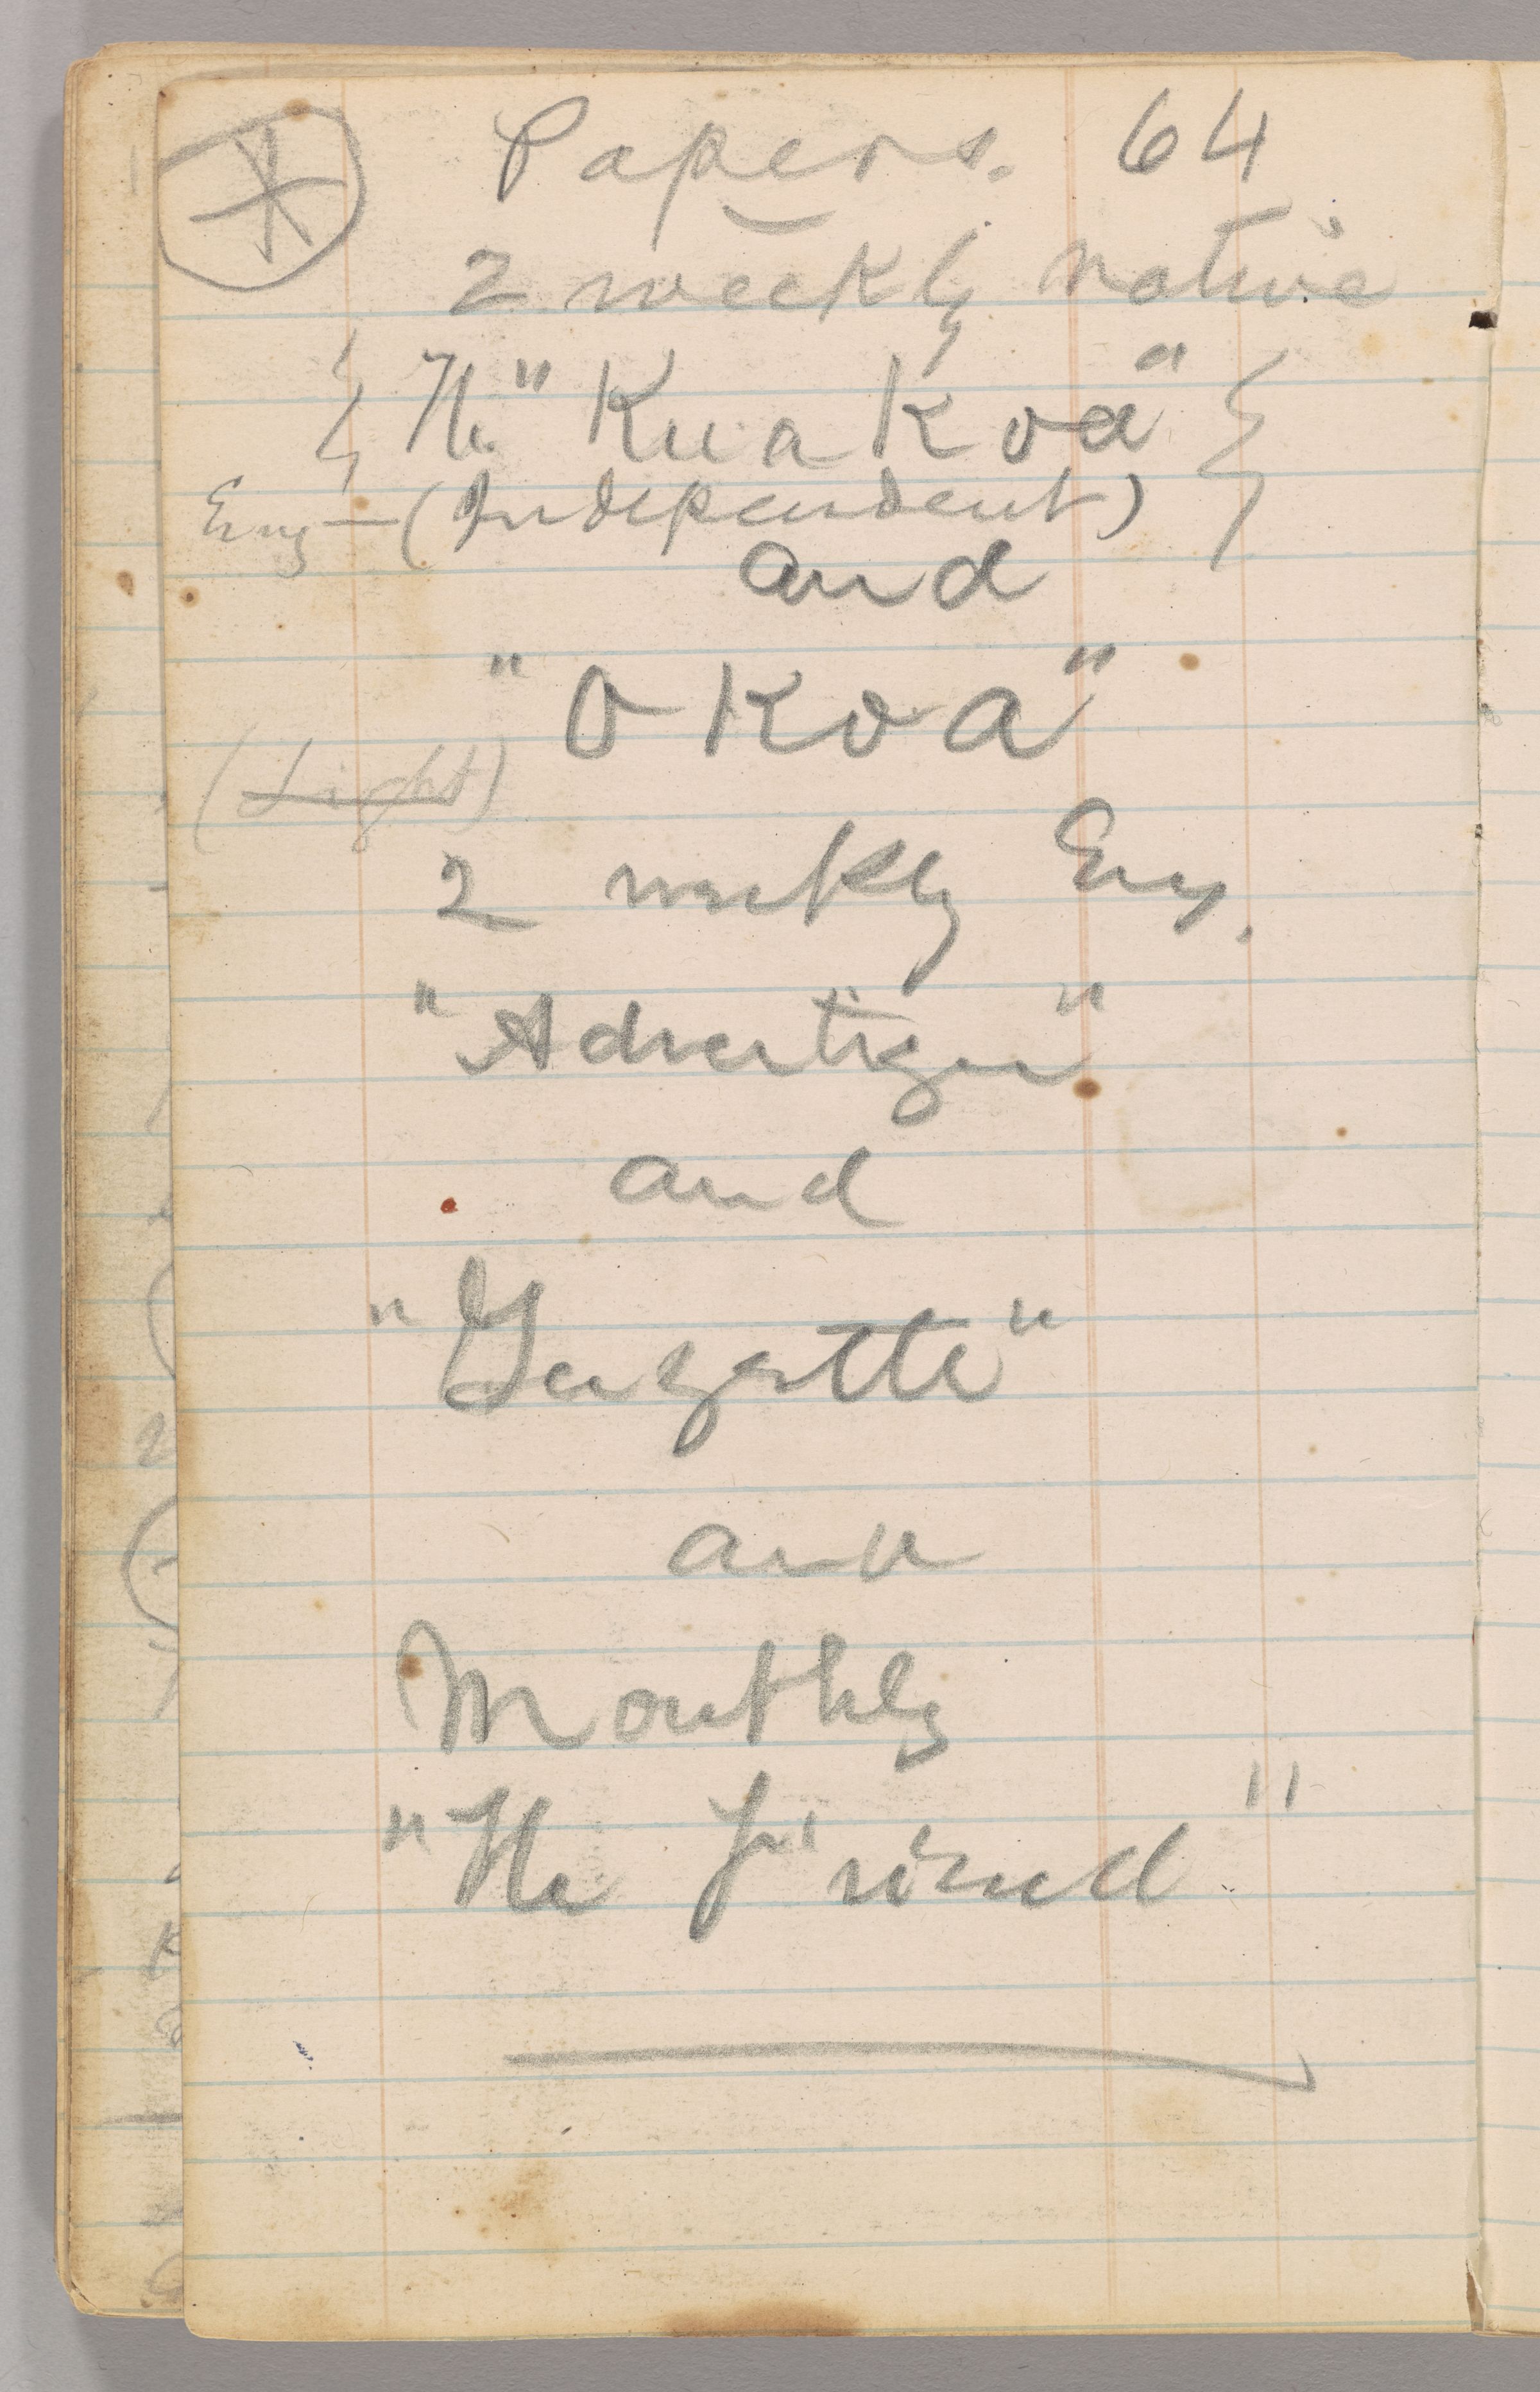 Papers. 64
2 weekly native
The "Kuakoa"
Eng — (Independent)
and
"O Koa"
(Light)
2 weekly Eng.
"Advertiser"
and
"Gazette"
and
Monthly
"The Friend"